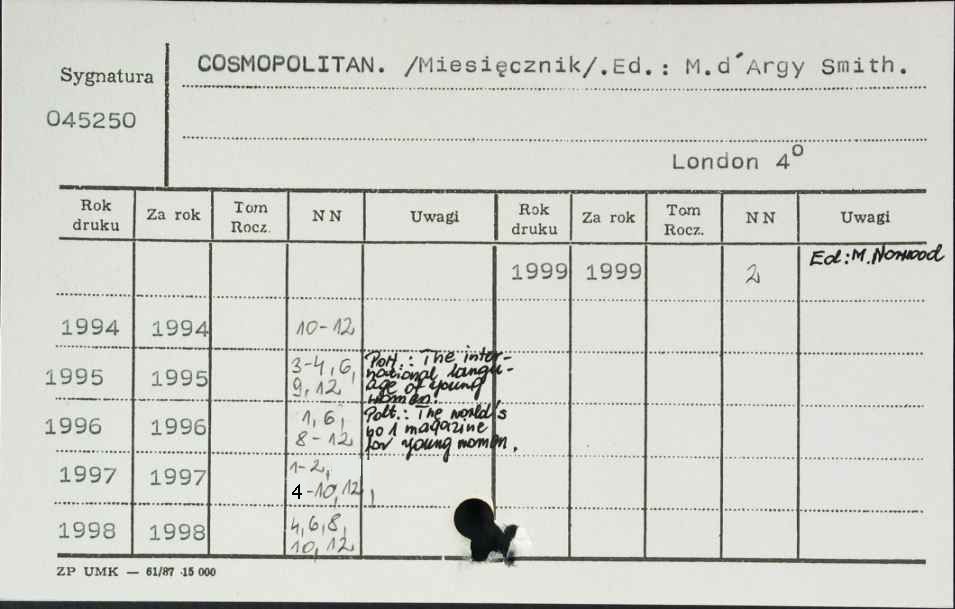 Sygnatura
045250
COSMOPOLITAN. /Miesięcznik/.Ed.: M.d´Argy Smith.
London 4°
Rok druku Za rok Tom Rocz. NN Uwagi Rok druku Za rok Tom Rocz. NN Uwagi
1999 1999 2 Ed:M.Norwood
1994 1994 10-12
1995 1995 3-4,6, 9,12
Podt.: The inter-
national langu-
age of young
women.
1996 1996 1,6, 8-12
Podt.: The world's
no 1 magazine
for young women.
1997 1997 1-2, 4-10,12,
1998 1998 4,6,8, 10,12
ZP UMK — 61/87 ·15 000